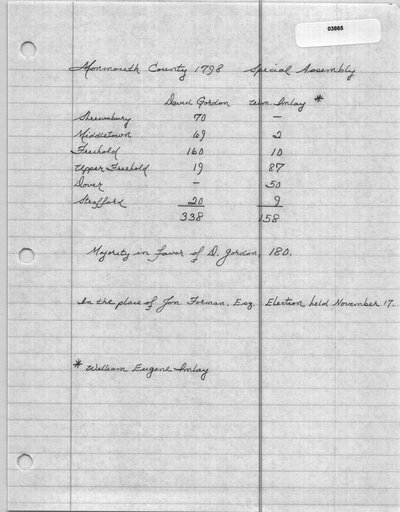 03865
Monmouth County 1798 Special Assembly
David Gordon Wm. Imlay *
Shrewsbury 70 —
Middletown 69 2
Freehold 160 10
Upper Freehold 19 87
Dover — 50
Stafford 20 9
338 158
Majority in favor of D. Gordon, 180.
In the place of Jon Forman, Esq. Election held November 17.
* William Eugene Imlay